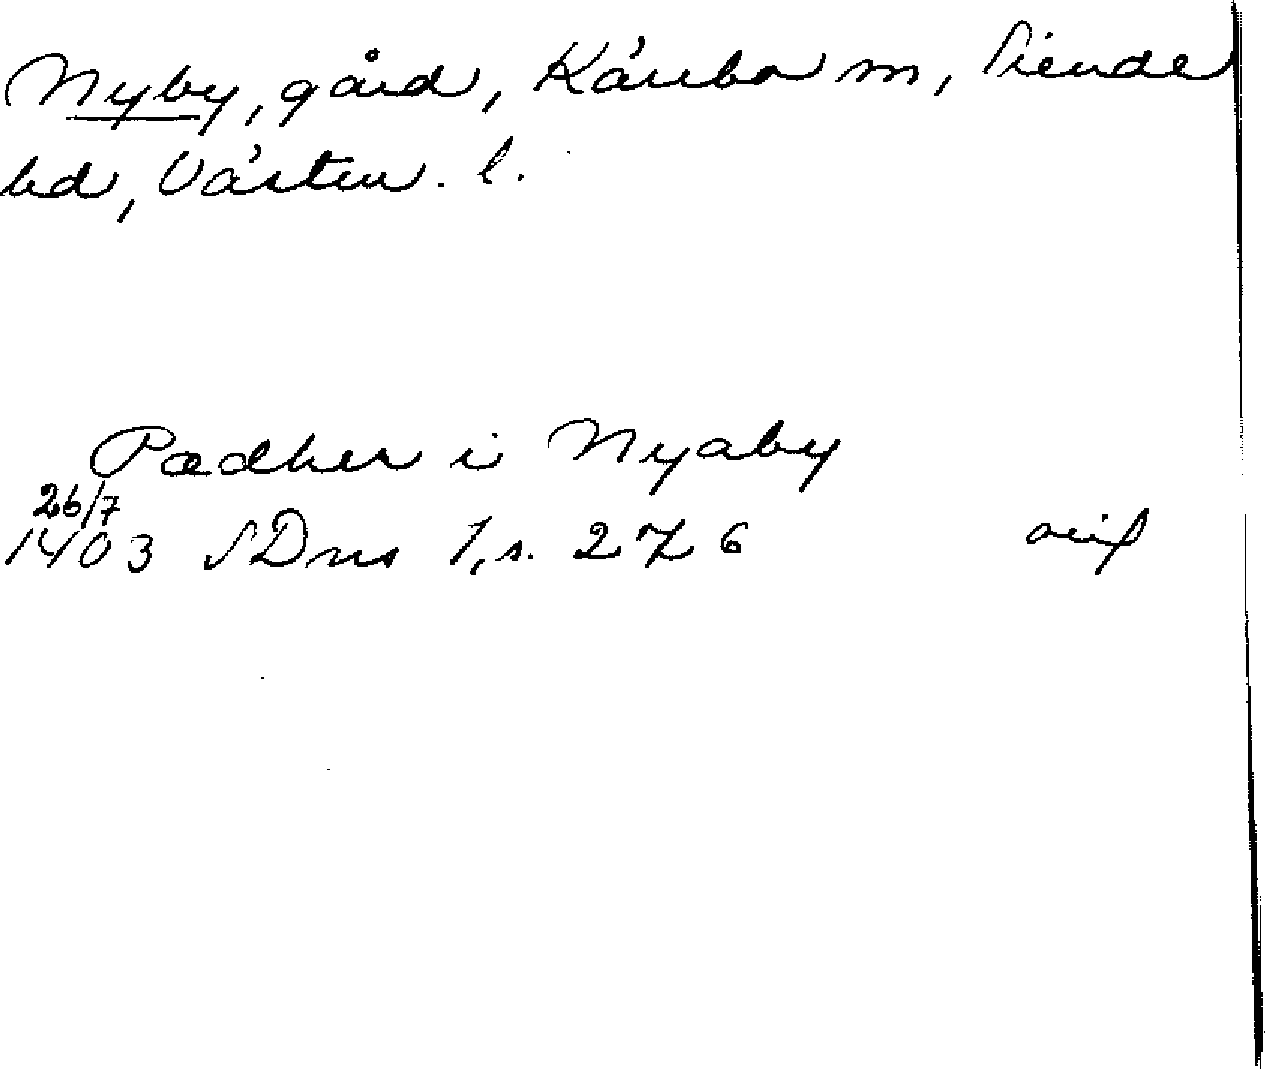 Nyby, gård, Kärrbo sn, Siende
hd, Västm. l.
Pædher i Nyaby
26/7
1403 SDns 1, s. 276 avif